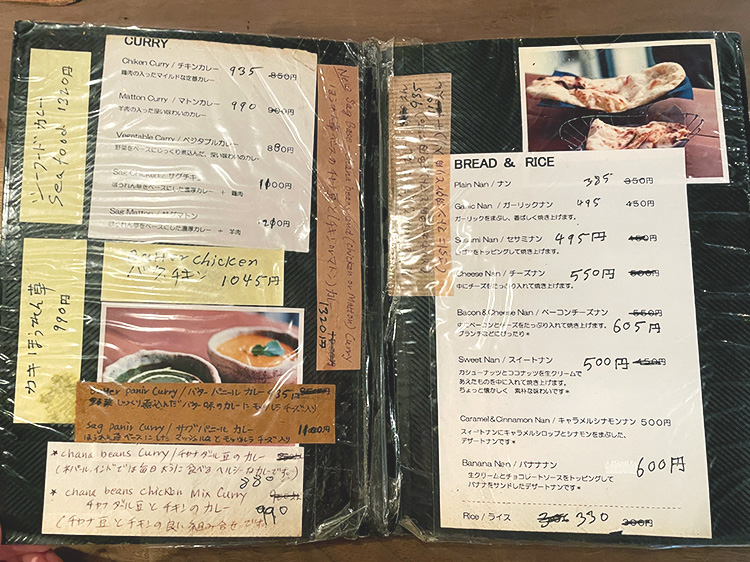 シーフード・カレー 1320円
Seafood
カキ ほうれん草
910円
CURRY
Chiken Curry / チキンカレー 935 850円
鶏肉の入ったマイルドな定番カレー
Matton Curry / マトンカレー 990 900円
羊肉の入った深い味わいのカレー
Vegetable Curry / ベジタブルカレー 880円
野菜をベースにじっくり煮込んだ、深い味わいのカレー
Sag Chicken / サグチキン 1100円
ほうれん草をベースにした濃厚カレー + 鶏肉
Sag Matton / サグマトン 1210円
ほうれん草をベースにした濃厚カレー + 羊肉
Butter chicken
バターチキン 1045円
Sag Beans
(chicken or Mattan) Curry
1320円
panir Curry / バターパニール カレー 935円
sag panir Curry / サグパニール カレー 1100円
chana beans Curry / チャナダル豆のカレー
(ネパール、インドでは毎日のように食べるヘルシーなカレーです。)
880
* chana beans chicken Mix Curry
チャナダル豆とチキンのカレー 990
(チャナ豆とチキンの良い組み合せです。
935
BREAD & RICE
Plain Nan / ナン 385 350円
Garlic Nan / ガーリックナン 495 450円
ガーリックをまぶし、香ばしく焼き上げます。
Susumi Nan / セサミナン 495円 450円
ゴマをトッピングして焼き上げます。
Cheese Nan / チーズナン 550円 500円
中にチーズをたっぷり入れて焼き上げます。
Bacon&Cheese Nan / ベーコンチーズナン 550円
中にベーコンとチーズをたっぷり入れて焼き上げます。 605円
ブランチなどにぴったり*
Sweet Nan / スイートナン 500円 450円
カシューナッツとココナッツを生クリームで
あえたものを中に入れて焼き上げます。
ちょっと懐かしく 素朴な味わいです*
Caramel&Cinnamon Nan / キャラメルシナモンナン 500円
スィートナンにキャラメルシロップとシナモンをまぶした、
デザートナンです*
Banana Nan / バナナナン 600円
生クリームとチョコレートソースをトッピングして
バナナをサンドしたデザートナンです*
Rice / ライス 330 300円